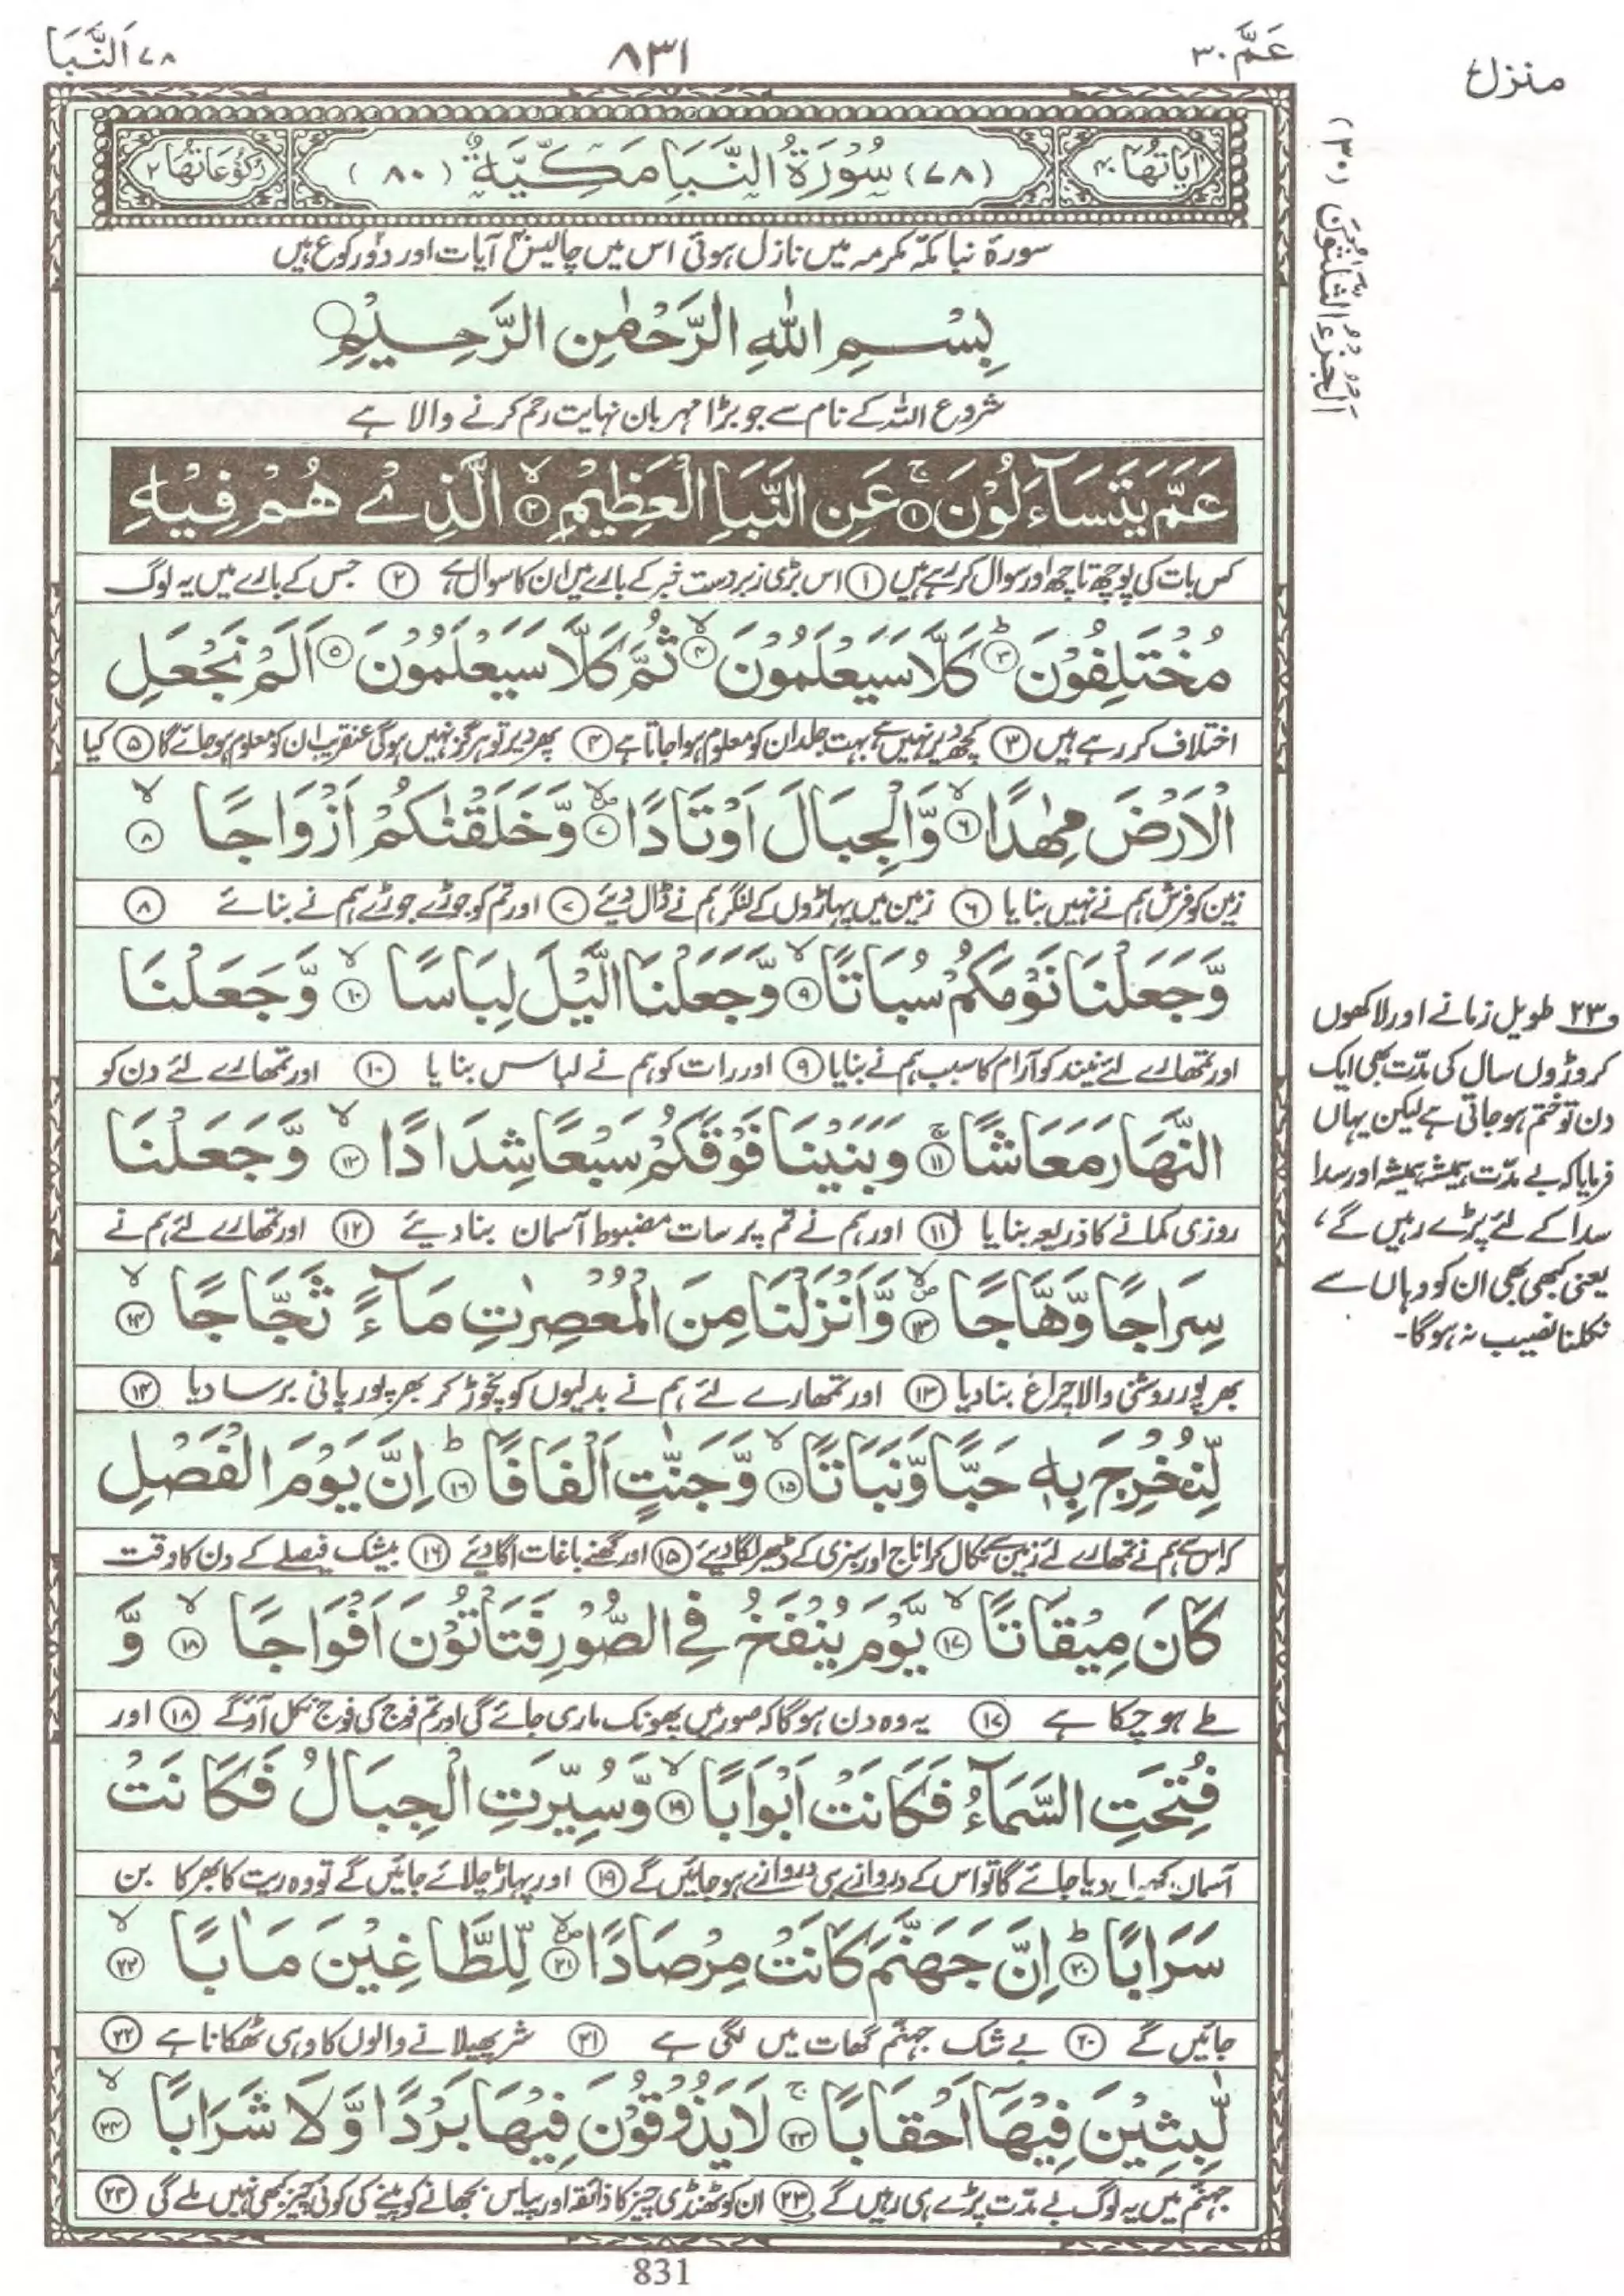 عَمَّ ٣٠
٨٣١
٧٨ اَلنَّبَا
منزل ٧
اٰيَاتُهَا ٤٠
(٧٨) سُوْرَةُ النَّبَاِ مَكِّيَّةٌ (٨٠)
رُكُوْعَاتُهَا ٢
سورۂ نبا مکّہ مکرمہ میں نازل ہوئی اس میں چالیس آیات اور دو رکوع ہیں
بِسْمِ اللّٰهِ الرَّحْمٰنِ الرَّحِيْمِ
شروع اللہ کے نام سے جو بڑا مہربان نہایت رحم کرنے والا ہے
عَمَّ يَتَسَآءَلُوْنَ ۚ‏﴿١﴾ عَنِ النَّبَاِ الْعَظِيْمِ ۙ‏﴿٢﴾ الَّذِىْ هُمْ فِيْهِ
کس بات کی پوچھ تاچھ اور سوال کر رہے ہیں ﴿١﴾ اس بڑی زبردست خبر کے بارے میں ان کا سوال ہے ﴿٢﴾ جس کے بارے میں یہ لوگ
مُخْتَلِفُوْنَ ؕ‏﴿٣﴾ كَلَّا سَيَعْلَمُوْنَ ۙ‏﴿٤﴾ ثُمَّ كَلَّا سَيَعْلَمُوْنَ ﴿٥﴾ اَلَمْ نَجْعَلِ
اختلاف کر رہے ہیں ﴿٣﴾ کچھ دیر نہیں ہے بہت جلد ان کو معلوم ہوا جاتا ہے ﴿٤﴾ پھر دیر تو ہرگز نہیں ہوگی عنقریب ان کو معلوم ہو جائے گا ﴿٥﴾ کیا
الْاَرْضَ مِهٰدًا ۙ‏﴿٦﴾ وَّالْجِبَالَ اَوْتَادًا ۙ‏﴿٧﴾ وَّخَلَقْنٰكُمْ اَزْوَاجًا ۙ‏﴿٨﴾
زمین کو فرش ہم نے نہیں بنایا ﴿٦﴾ زمین میں پہاڑوں کے لنگر ہم نے ڈال دیئے ﴿٧﴾ اور تم کو جوڑے جوڑے ہم نے بنائے ﴿٨﴾
وَّجَعَلْنَا نَوْمَكُمْ سُبَاتًا ۙ‏﴿٩﴾ وَّجَعَلْنَا الَّيْلَ لِبَاسًا ۙ‏﴿١٠﴾ وَّجَعَلْنَا
اور تمھارے لئے نیند کو آرام کا سبب ہم نے بنایا ﴿٩﴾ اور رات کو ہم نے لباس بنایا ﴿١٠﴾ اور تمھارے لئے دن کو
النَّهَارَ مَعَاشًا ﴿١١﴾ وَبَنَيْنَا فَوْقَكُمْ سَبْعًا شِدَادًا ۙ‏﴿١٢﴾ وَّجَعَلْنَا
روزی کمانے کا ذریعہ بنایا ﴿١١﴾ اور ہم نے تم پر سات مضبوط آسمان بنا دیئے ﴿١٢﴾ اور تمھارے لئے ہم نے
سِرَاجًا وَّهَّاجًا ۙ‏﴿١٣﴾ وَّاَنْزَلْنَا مِنَ الْمُعْصِرٰتِ مَآءً ثَجَّاجًا ۙ‏﴿١٤﴾
بھرپور روشنی والا چراغ بنا دیا ﴿١٣﴾ اور تمھارے لئے ہم نے بدلیوں کو نچوڑ کر بھرپور پانی برسا دیا ﴿١٤﴾
لِّنُخْرِجَ بِهٖ حَبًّا وَّنَبَاتًا ۙ‏﴿١٥﴾ وَّجَنّٰتٍ اَلْفَافًا ؕ‏﴿١٦﴾ اِنَّ يَوْمَ الْفَصْلِ
کہ اس سے ہم نے تمھارے لئے زمین سے نکال کر اناج اور سبزی کے ڈھیر لگا دیئے ﴿١٥﴾ اور گھنے باغات اگا دیئے ﴿١٦﴾ بیشک فیصلے کے دن کا وقت
كَانَ مِيْقَاتًا ۙ‏﴿١٧﴾ يَّوْمَ يُنْفَخُ فِى الصُّوْرِ فَتَاْتُوْنَ اَفْوَاجًا ۙ‏﴿١٨﴾ وَّ
طے ہو چکا ہے ﴿١٧﴾ یہ وہ دن ہوگا کہ صور میں پھونک ماری جائے گی اور تم فوج کی فوج نکل آؤ گے ﴿١٨﴾ اور
فُتِحَتِ السَّمَآءُ فَكَانَتْ اَبْوَابًا ۙ‏﴿١٩﴾ وَّسُيِّرَتِ الْجِبَالُ فَكَانَتْ
آسمان دیا جائے گا تو اس کے دروازے ہی دروازے ہو جائیں گے ﴿١٩﴾ اور پہاڑ چلائے جائیں گے تو وہ ریت کا بھر کا بن
سَرَابًا ؕ‏﴿٢٠﴾ اِنَّ جَهَنَّمَ كَانَتْ مِرْصَادًا ۙ‏﴿٢١﴾ لِّلطَّاغِيْنَ مَاٰبًا ۙ‏﴿٢٢﴾
جائیں گے ﴿٢٠﴾ بے شک جہنّم گھات میں لگی ہے ﴿٢١﴾ شر پھیلانے والوں کا وہی ٹھکانا ہے ﴿٢٢﴾
لّٰبِثِيْنَ فِيْهَآ اَحْقَابًا ۚ‏﴿٢٣﴾ لَا يَذُوْقُوْنَ فِيْهَا بَرْدًا وَّلَا شَرَابًا ۙ‏﴿٢٤﴾
جہنّم میں یہ لوگ بے مدّت پڑے ہی رہیں گے ﴿٢٣﴾ ان کو ٹھنڈی چیز کا ذائقہ اور پیاس بجھانے کو پینے کی کوئی چیز بھی نہیں ملے گی ﴿٢٤﴾
اَلْجُزْءُ الثَّلٰثُوْنَ (٣٠)
و٢٣ طویل زمانے اور لاکھوں
کروڑوں سال کی مدّت بھی ایک
دن تو ختم ہو جاتی ہے لیکن یہاں
فرمایا کہ بے مدّت ہمیشہ ہمیشہ اور سدا
سدا کے لئے پڑے رہیں گے،
یعنی کبھی بھی ان کو وہاں سے
نکلنا نصیب نہ ہوگا۔
831